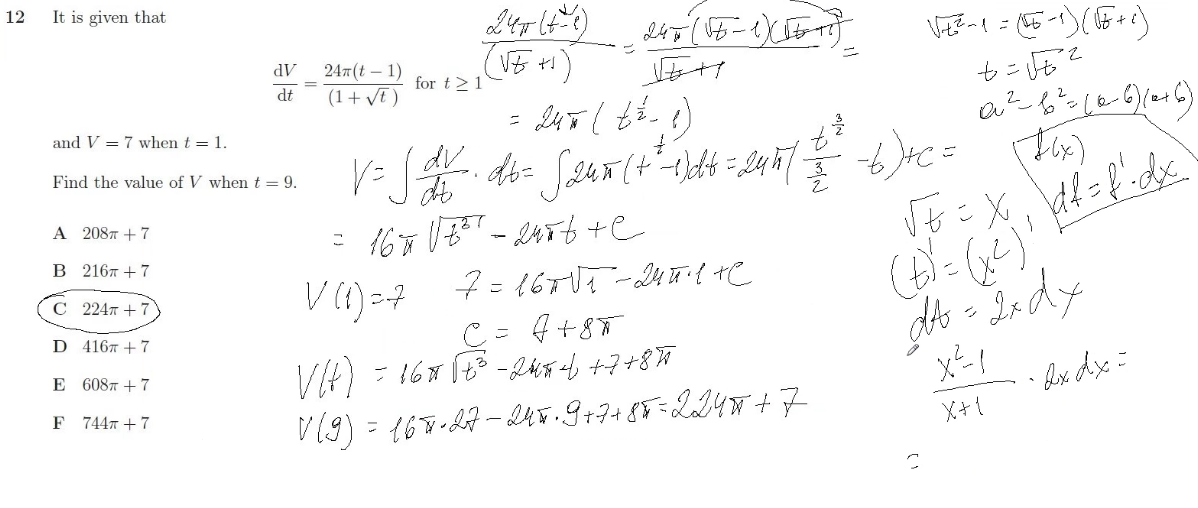 12 It is given that
dV/dt = 24π(t − 1)/(1 + √t) for t ≥ 1
and V = 7 when t = 1.
Find the value of V when t = 9.
A 208π + 7
B 216π + 7
C 224π + 7
D 416π + 7
E 608π + 7
F 744π + 7
24π(t−1)/(√t +1) = 24π(√t −1)(√t +1)/(√t +1) =
= 24π(t^(1/2) − 1)
V = ∫ dV/dt · dt = ∫ 24π(t^(1/2) −1)dt = 24π(t^(3/2)/(3/2) − t) + C =
= 16π√t³ − 24πt + C
V(1) = 7 7 = 16π√1 − 24π·1 + C
C = 7 + 8π
V(t) = 16π√t³ − 24π t + 7 + 8π
V(9) = 16π·27 − 24π·9 + 7 + 8π = 224π + 7
√t² −1 = (√t −1)(√t +1)
t = √t²
a² − b² = (a−b)(a+b)
f(x)
df = f'·dx
√t = x
(t)' = (x²)'
dt = 2x dx
(x²−1)/(x+1) · 2x dx =
=